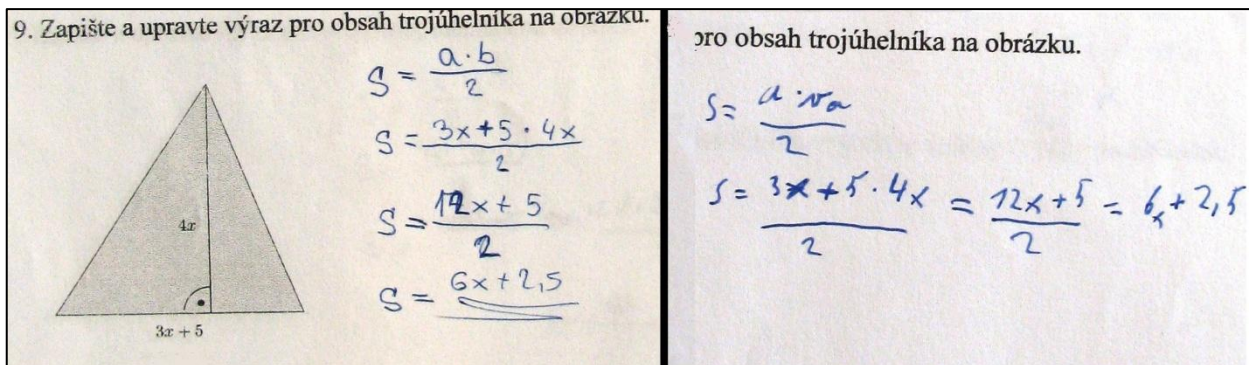 9. Zapište a upravte výraz pro obsah trojúhelníka na obrázku.
4x
3x + 5
S = a·b / 2
S = 3x+5·4x / 2
S = 12x+5 / 2
S = 6x+2,5
pro obsah trojúhelníka na obrázku.
S = a·va / 2
S = 3x+5·4x / 2 = 12x+5 / 2 = 6x+2,5